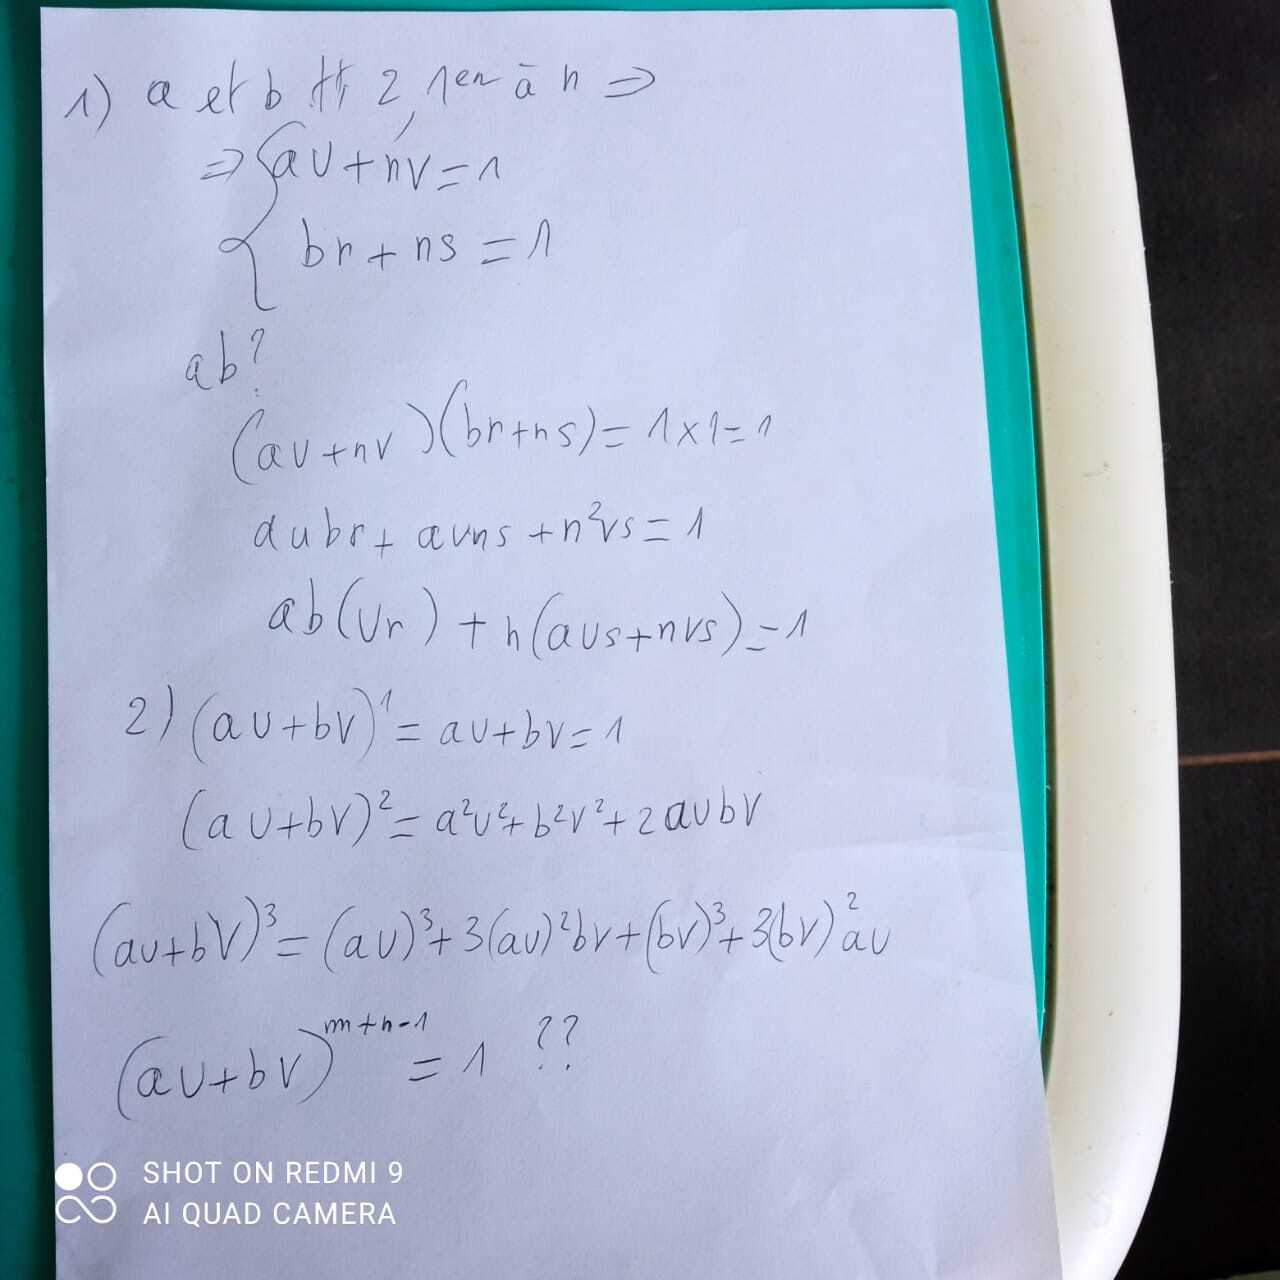 1) a et b tt 2, 1er à n ⇒
⇒ { au + nv = 1
{ br + ns = 1
ab?
(au + nv)(br + ns) = 1 x 1 = 1
aubr + auns + n²vs = 1
ab(ur) + n(aus + nvs) = 1
2) (au + bv)¹ = au + bv = 1
(au + bv)² = a²u² + b²v² + 2aubv
(au + bv)³ = (au)³ + 3(au)²bv + (bv)³ + 3(bv)²au
(au + bv)^{m+n-1} = 1 ??
SHOT ON REDMI 9
AI QUAD CAMERA